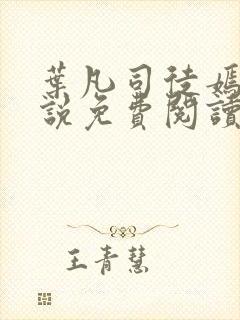 葉凡司徒嫣
說免費閱讀
王青慧